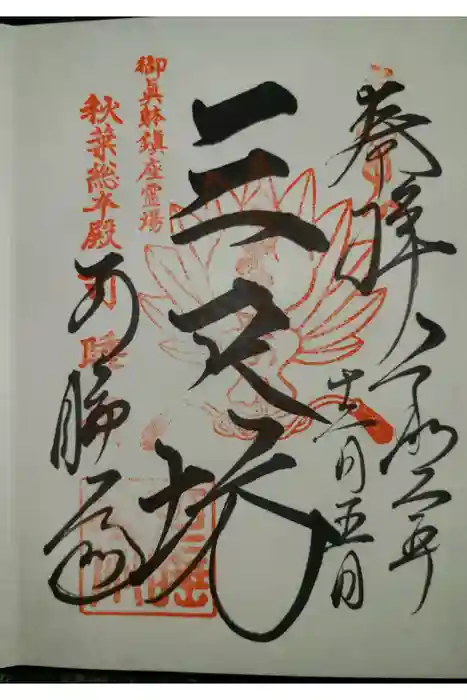 奉拝 令和二年
十一月五日
三尺坊
御眞躰鎮座霊場
秋葉総本殿 可睡
可睡斎